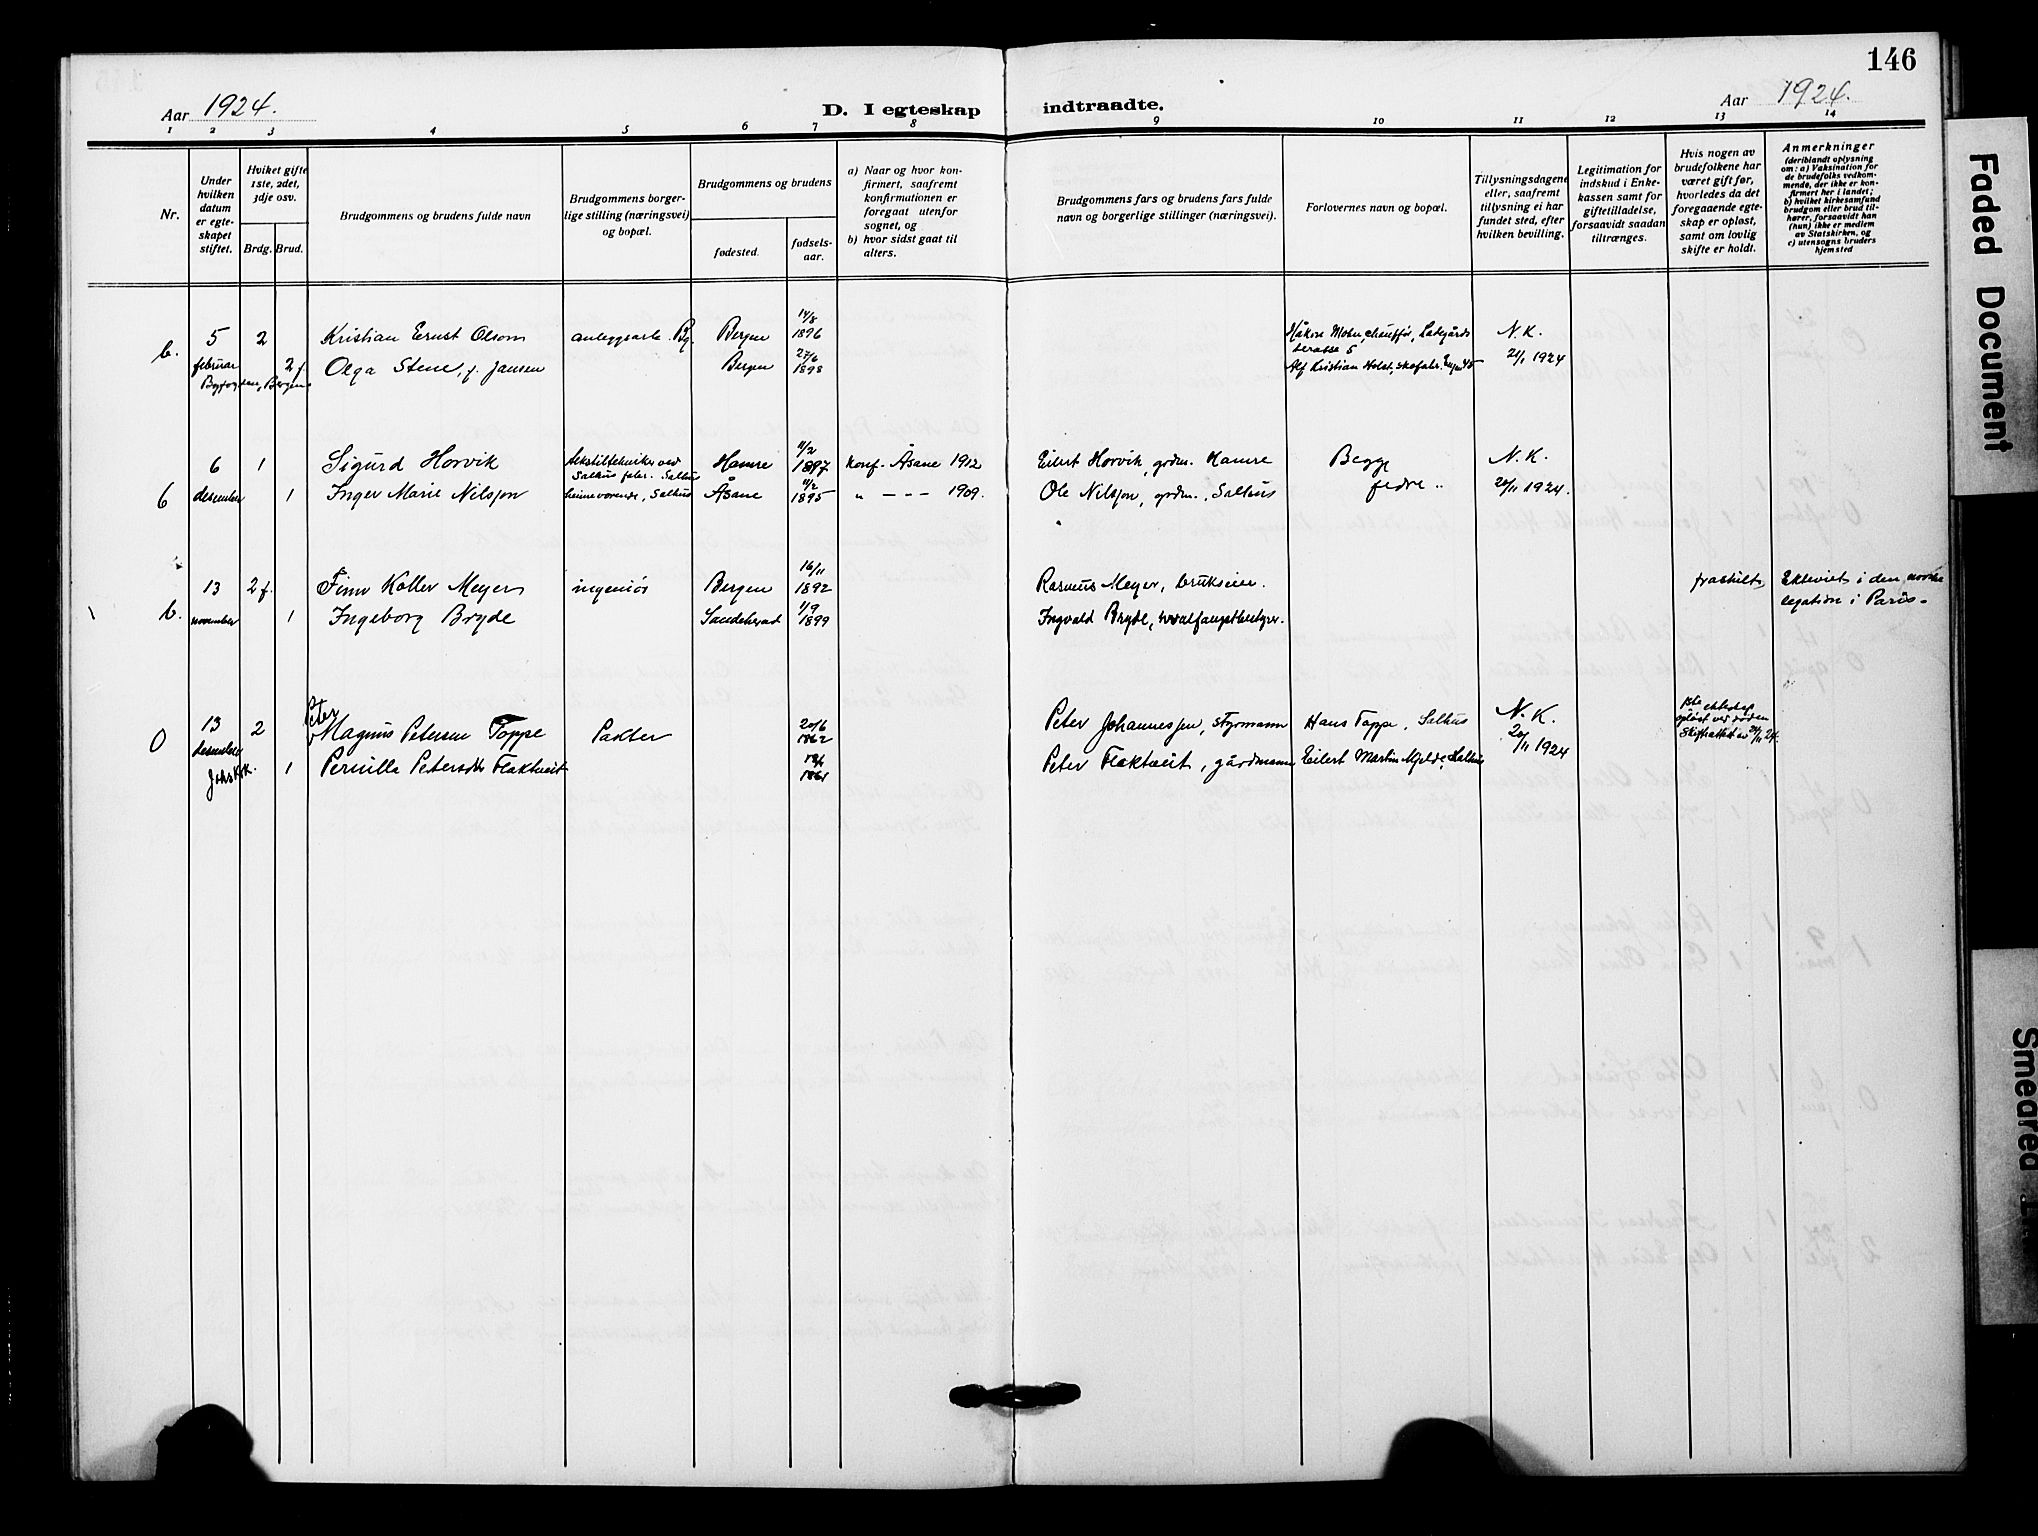 146
Aar 1924.
D. I egteskap indtraadte.
Aar 1924.
1 2 3 4 5 6 7 8 9 10 11 12 13 14
Nr.
Under hvilken datum er egteskapet stiftet.
Hviket gifte 1ste, 2det, 3dje osv.
Brdg. Brud.
Brudgommens og brudens fulde navn
Brudgommens borgerlige stilling (næringsvei) og bopæl.
Brudgommens og brudens
fødested.
fødselsaar.
a) Naar og hvor konfirmert, saafremt konfirmationen er foregaat utenfor sognet, og
b) hvor sidst gaat til alters.
Brudgommens fars og brudens fars fulde navn og borgerlige stillinger (næringsvei).
Forlovernes navn og bopæl.
Tillysningsdagene eller, saafremt tillysning ei har fundet sted, efter hvilken bevilling.
Legitimation for indskud i Enkekassen samt for giftetilladelse, forsaavidt saadan tiltrænges.
Hvis nogen av brudefolkene har været gift før, hvorledes da det foregaaende egteskap er opløst, samt om lovlig skifte er holdt.
Anmerkninger
(deriblandt oplysning om: a) Vaksination for de brudefolks vedkommende, der ikke er konfirmert her i landet; b) hvilket kirkesamfund brudgom eller brud tilhører, forsaavidt han (hun) ikke er medlem av Statskirken, og c) utensogns bruders hjemsted
b. 5 2 Kristian Ernst Olsom anleggsarb. Bg. Bergen 14/8 1896 Håkon Mohn, chauffør, Ladegårds terasse 5 N.K.
februar 2 f. Olga Stene, f. Jansen Bergen 27/6 1898 Alf Kristian Holst, 21/1 1924
Byfogden, Bergen
6 1 Sigurd Horvik tekstiltekniker ved Salhus fabr. Salhus Hamre 11/2 1897 konf. Åsane 1912 Eilert Horvik, grdm. Hamre Begge N.K.
6 desember 1 Inger Marie Nilsson heimeværende, Salhus Åsane 11/2 1895 " - - - 1909. Ole Nilsson, grdm., Salhus fedre .. 20/11 1924.
13 2 f. Finn Koller Meyer ingeniør Bergen 16/11 1892 Rasmus Meyer, brukseier. fraskilt Ekteviet i den norske
b. november 1 Ingeborg Bryde Sandeherad 1/9 1899 Ingvald Bryde, hvalfangstbestyrer. legation i Paris.
Peter
0 13 2 Magnus Petersen Toppe Pakter 20/6 1862 Peter Johannessen, styrmann Hans Toppe, Salhus N.K. 1ste ekteskap opløst ved døden Skifteattest av 24/11 24.
desember 1 Pernilla Petersdtr Flaktveit 1861 Peter Flaktveit, gårdmann Eilert Martin Mjelde, Salhus 20/11 1924
Faded Document
Smeared